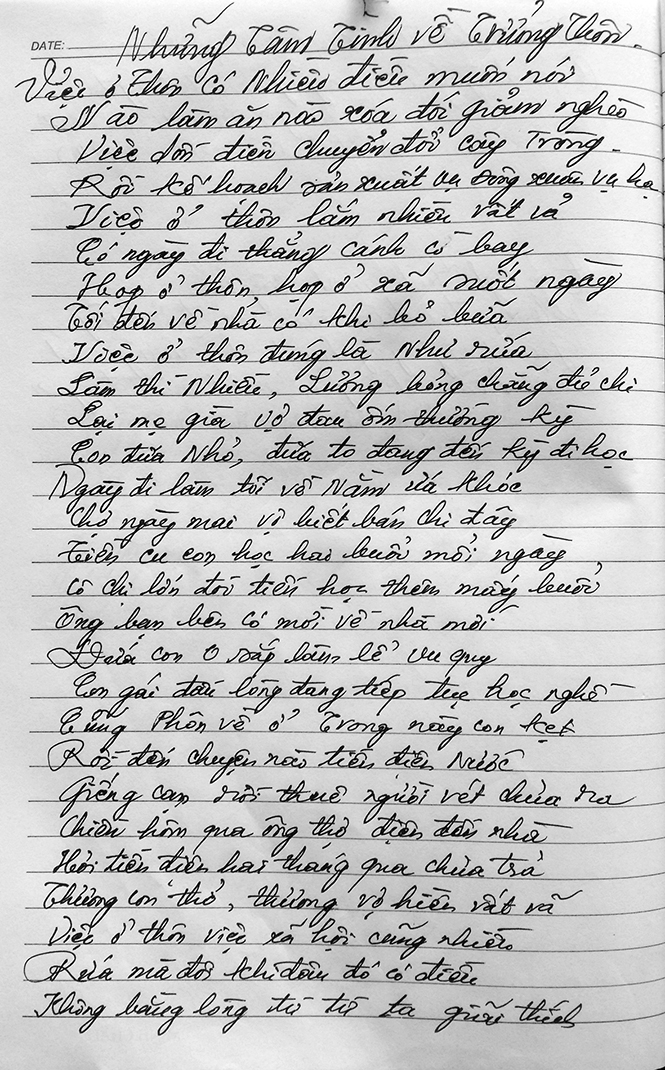 DATE:
Những Tâm Tình về Trưởng Thôn.
Việc ở thôn có Nhiều điều muốn nói
Nào làm ăn nào xóa đói giảm nghèo
Việc dồn điền chuyển đổi cây Trồng.
Rồi kế hoạch sản xuất vụ đông xuân vụ hạ
Việc ở thôn lắm nhiêu vất vả
Có ngày đi thẳng cánh cò bay
Họp ở thôn, họp ở xã suốt ngày
Tối đến về nhà có khi bỏ bữa
Việc ở thôn đúng là như rứa
Làm thì Nhiều, Lương bổng chẳng đủ chi
Lại mẹ già vợ đau ốm thường kỳ
Con đứa Nhỏ, đứa to đang đến kỳ đi học
Ngày đi làm tối về Nằm ứa khóc
Chợ ngày mai vợ biết bán chi đây
Tiền cu con học hai buổi mỗi ngày
Cô chị lớn đòi tiền học thêm mấy buổi
Ông bạn bên có mời về nhà mới
Đứa con O sắp làm lễ vu quy
Con gái đầu lòng đang tiếp tục học nghề
Cũng Phôn về ở Trong này con kẹt
Rồi đến chuyện nào tiền điện Nước
Giếng cạn rồi thuê người vét chưa ra
Chiều hôm qua ông thợ điện đến nhà
Hỏi tiền điện hai tháng qua chưa trả
Thương con thơ, thương vợ hiền vất vả
Việc ở thôn việc xã hội cũng nhiều
Rứa mà đôi khi đâu đó có điều
Không bằng lòng từ từ ta giải thích